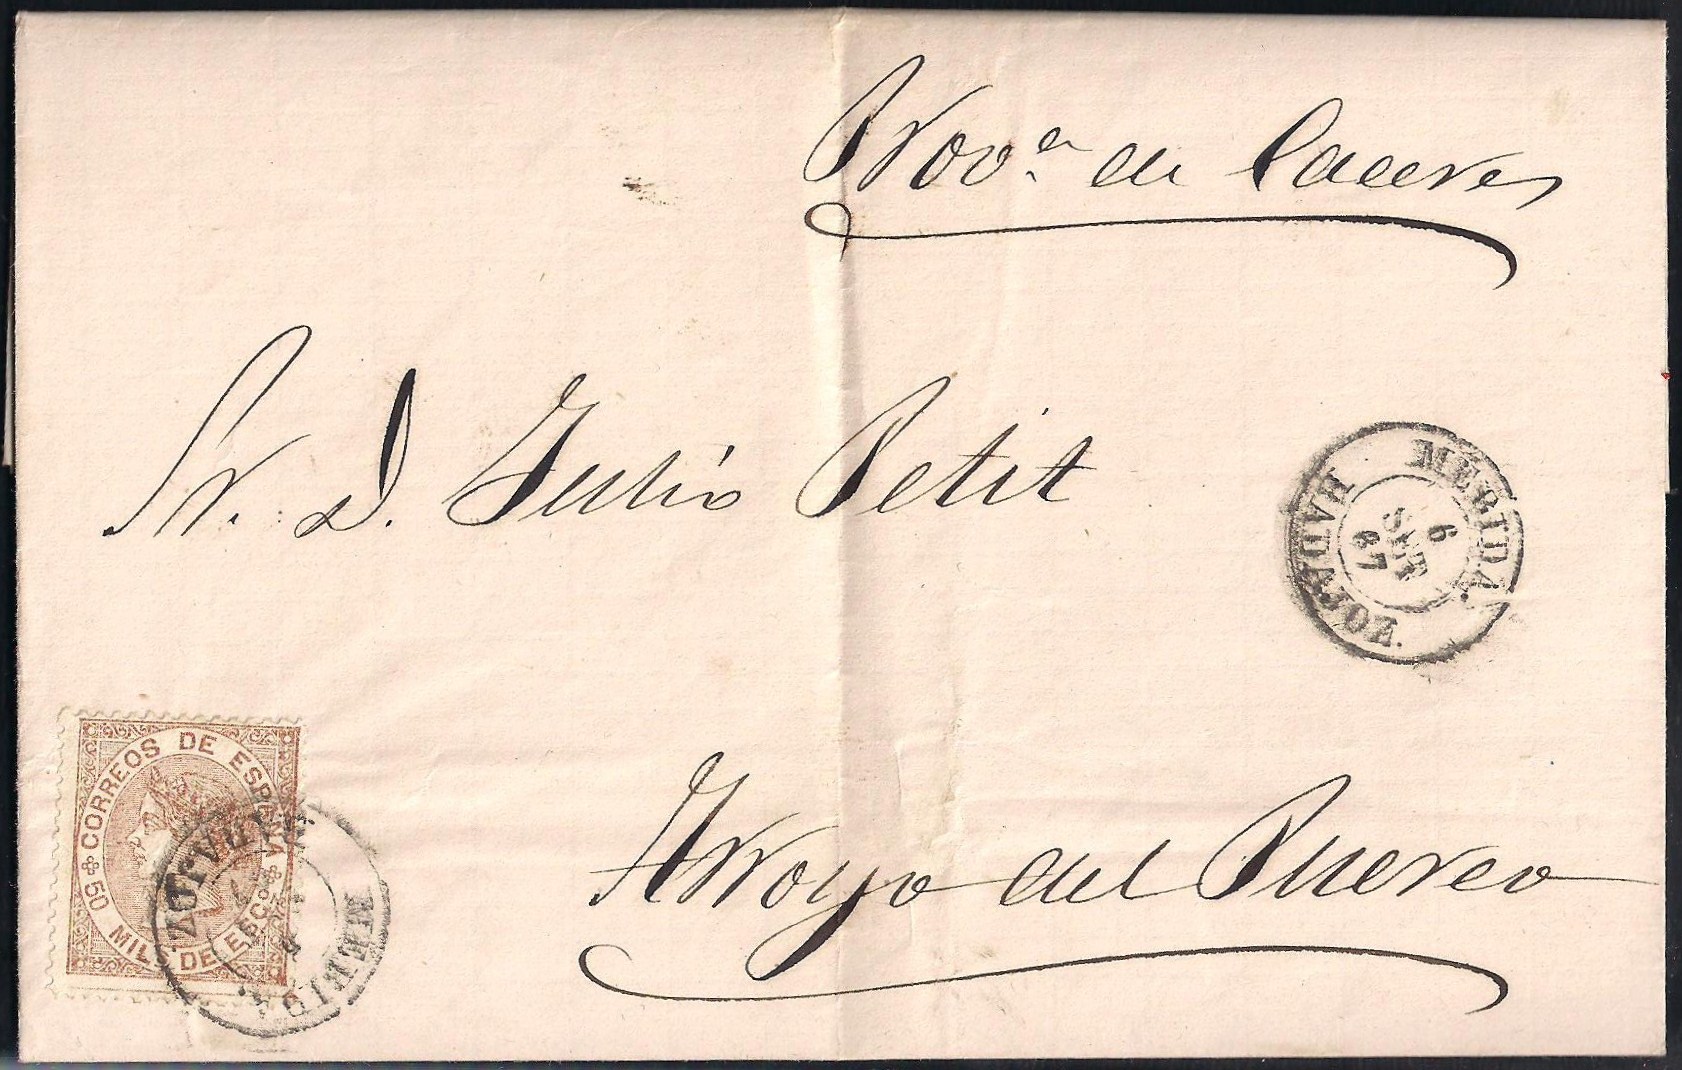 Prov.ª de Caceres
Sr. D. Julio Petit
MERIDA.
BADAJOZ.
6
SET
67
CORREOS DE ESPAÑA
50 MILS DE ESCO
MERIDA.
BADAJOZ.
Arroyo del Puerco